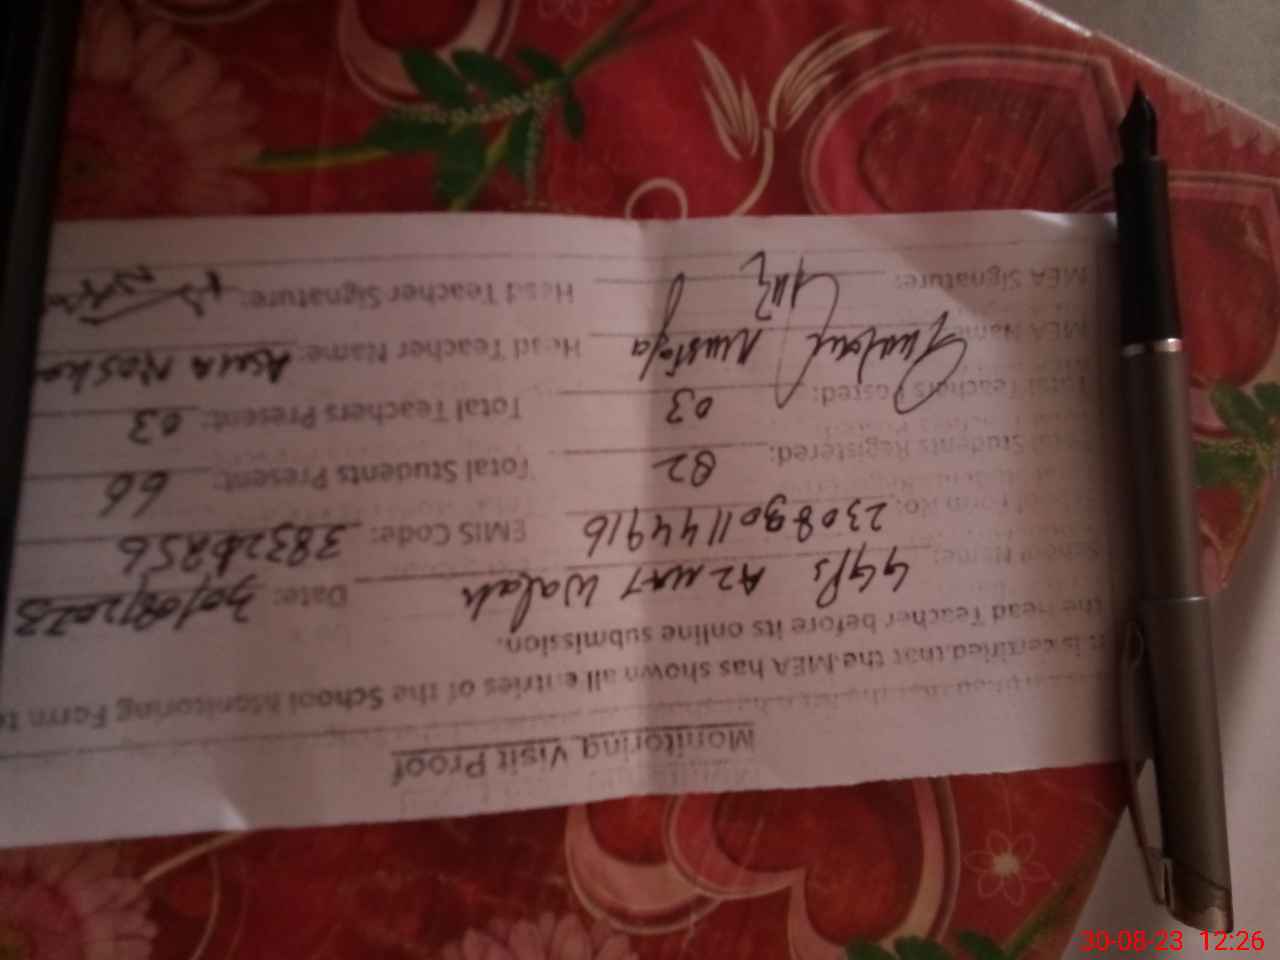 Monitoring Visit Proof
It is certified that the MEA has shown all entries of the School Monitoring Form to
the Head Teacher before its online submission.
School Name: GGPS Azmat Walah Date: 30/08/2023
Form No. 2308301144916 EMIS Code: 38320256
Total Students Registered: 82 Total Students Present: 66
Total Teachers Posted: 03 Total Teachers Present: 03
MEA Name: Ghulam Mustafa Head Teacher Name: Asma
MEA Signature: Head Teacher Signature:
30-08-23 12:26